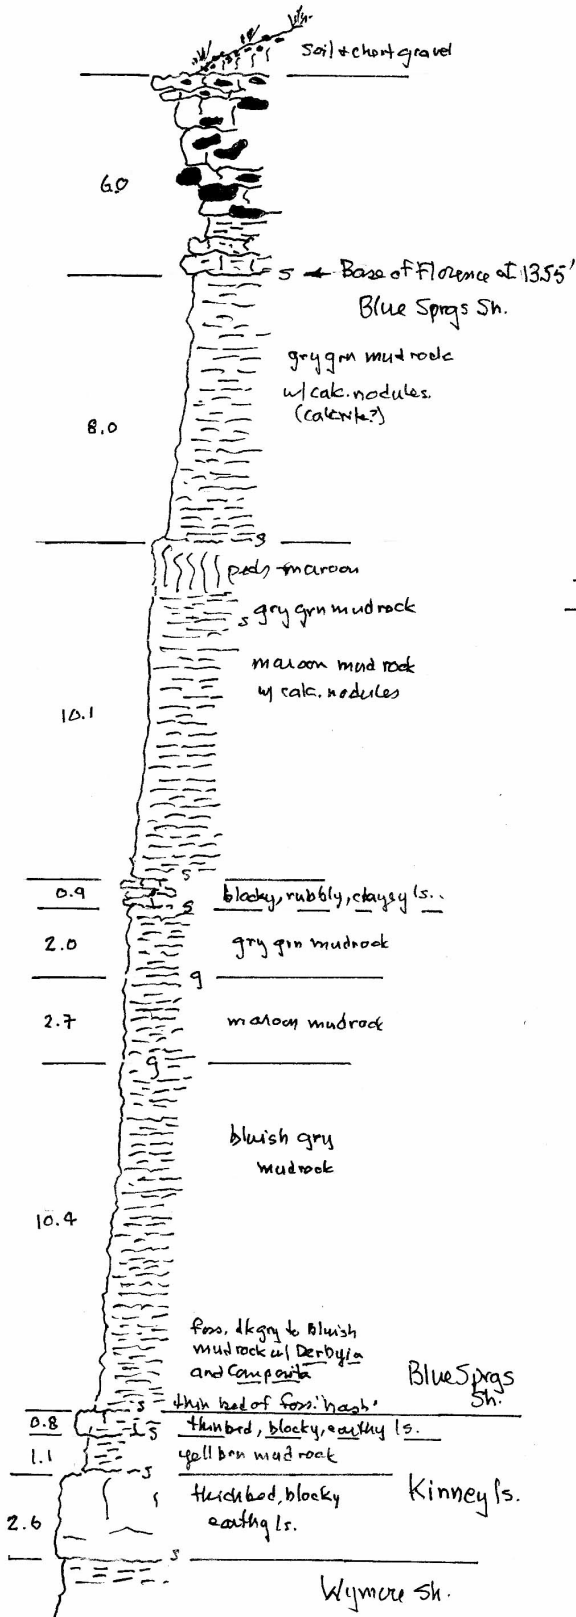 soil + chert gravel
6.0
s ← Base of Florence at 1355'
Blue Sprgs Sh.
gry grn mudrock
w/ calc. nodules.
(calcrete?)
8.0
s
peds - maroon
s gry grn mudrock
maroon mudrock
w/ calc. nodules
10.1
s
0.9 blocky, rubbly, clayey ls..
s
2.0 gry grn mudrock
g
2.7 maroon mudrock
g
bluish gry
mudrock
10.4
foss. dk gry to bluish
mudrock w/ Derbyia
and Composita
Blue Sprgs
Sh.
s thin bed of foss. hash.
0.8 s thin bed, blocky, earthy ls.
1.1 yell brn mudrock
s
thick bed, blocky
earthy ls.
Kinney ls.
2.6
s
Wymore Sh.